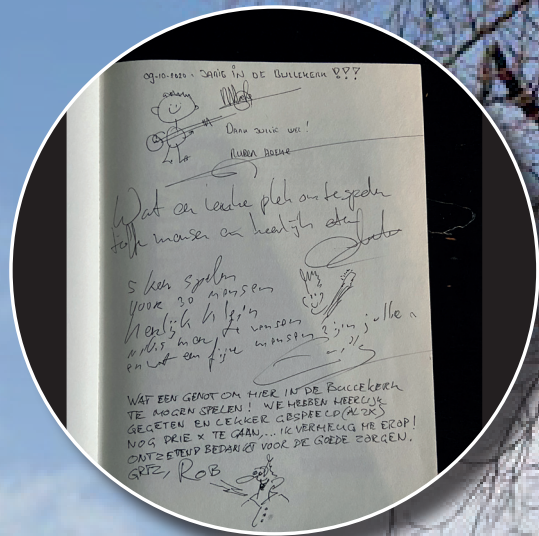 09-10-2020 - JARIG IN DE BULLEKERK !!!
DANK JULLIE WEL!
RUBEN HOEKE
Wat een leuke plek om te spelen
toffe mensen en heerlijk eten
5 keer spelen
voor 30 mensen
Heerlijk klein
niks meer te wensen
en wat een fijne mensen zijn jullie
WAT EEN GENOT OM HIER IN DE BULLEKERK
TE MOGEN SPELEN! WE HEBBEN HEERLIJK
GEGETEN EN LEKKER GESPEELD (AL 2X)
NOG DRIE X TE GAAN,... IK VERHEUG ME EROP!
ONTZETTEND BEDANKT VOOR DE GOEDE ZORGEN.
GRTZ, ROB